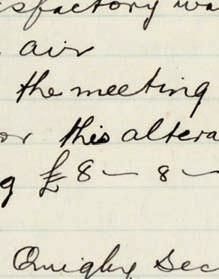 sfactory wa
air
the meeting
or this altera
g £8 — 8 —
Quigley Sec